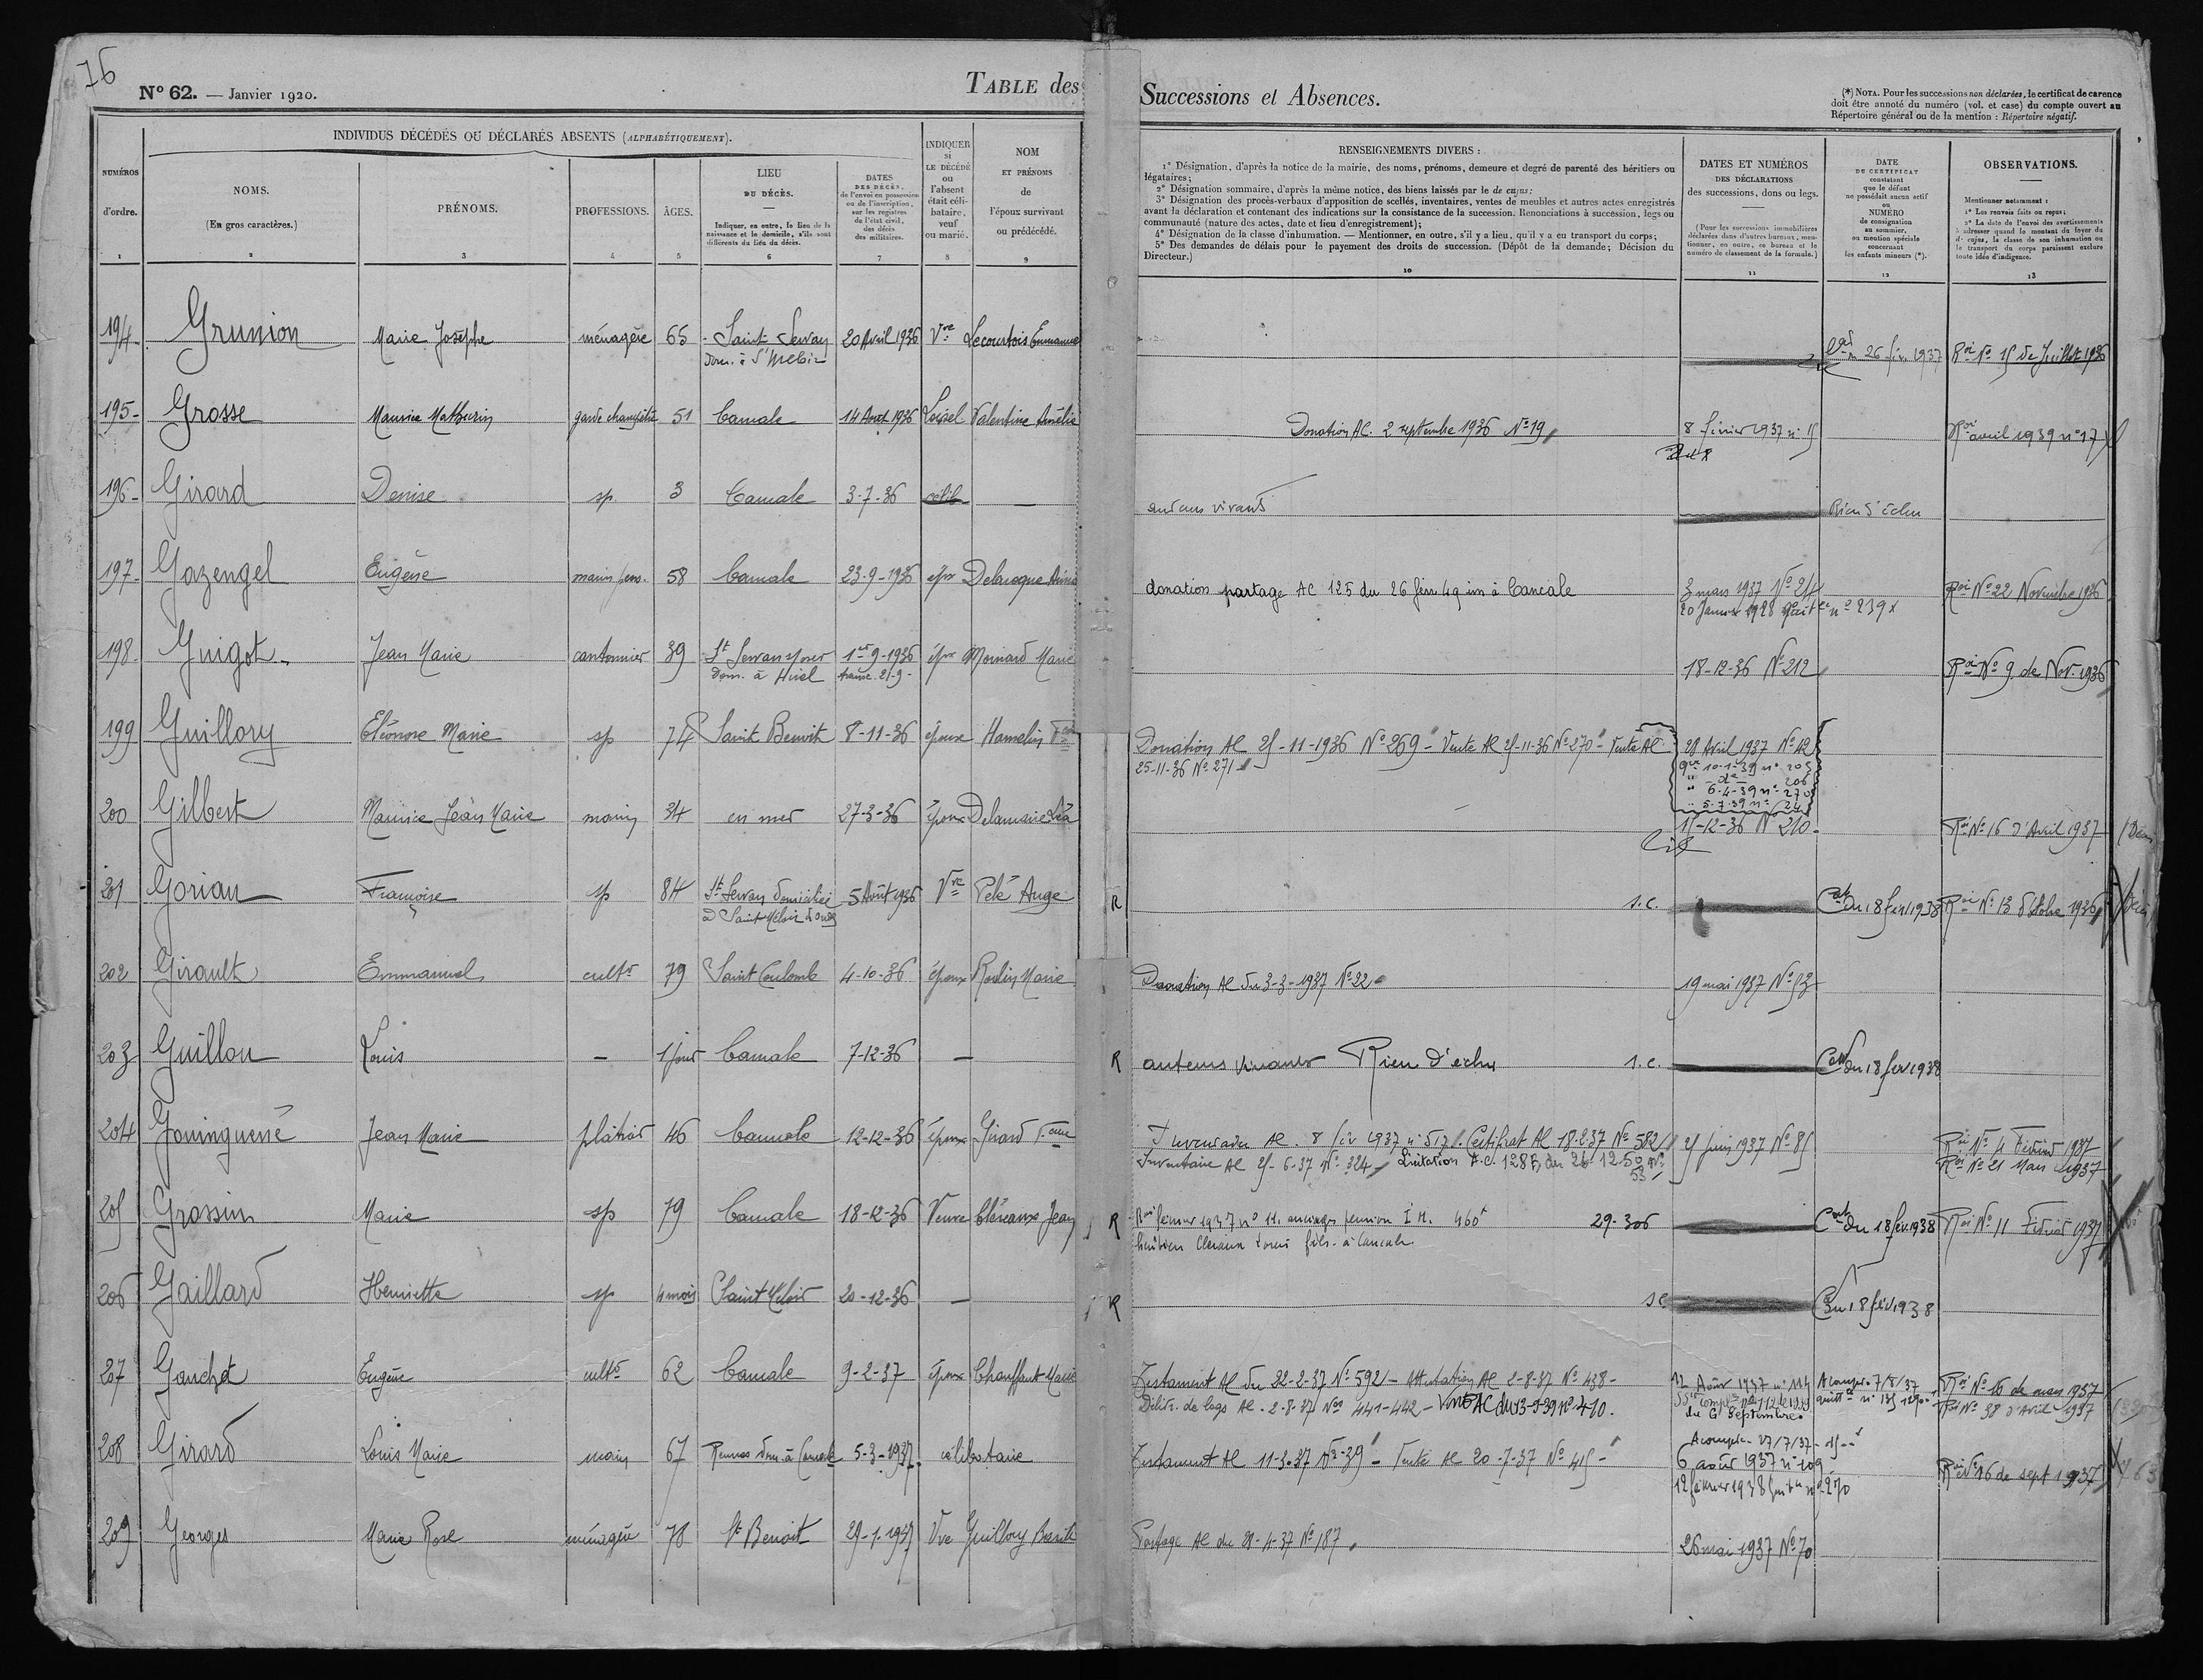 76
N° 62. — Janvier 1920.
TABLE des Successions et Absences.
(*) NOTA. Pour les successions non déclarées, le certificat de carence
doit être annoté du numéro (vol. et case) du compte ouvert au
Répertoire général ou de la mention : Répertoire négatif.
INDIVIDUS DÉCÉDÉS OU DÉCLARÉS ABSENTS (ALPHABÉTIQUEMENT).
NUMÉROS
d'ordre.
1
NOMS.
(En gros caractères.)
2
PRÉNOMS.
3
PROFESSIONS.
4
ÂGES.
5
LIEU
DU DÉCÈS.
Indiquer, en outre, le lieu de la
naissance et le domicile, s'ils sont
différents du lieu du décès.
6
DATES
DES DÉCÈS,
de l'envoi en possession
ou de l'inscription,
sur les registres
de l'état civil,
des décès
des militaires.
7
INDIQUER
si
LE DÉCÉDÉ
ou
l'absent
était céli-
bataire,
veuf
ou marié.
8
NOM
ET PRÉNOMS
de
l'époux survivant
ou prédécédé.
9
RENSEIGNEMENTS DIVERS :
1° Désignation, d'après la notice de la mairie, des noms, prénoms, demeure et degré de parenté des héritiers ou
légataires;
2° Désignation sommaire, d'après la même notice, des biens laissés par le de cujus;
3° Désignation des procès-verbaux d'apposition de scellés, inventaires, ventes de meubles et autres actes enregistrés
avant la déclaration et contenant des indications sur la consistance de la succession. Renonciations à succession, legs ou
communauté (nature des actes, date et lieu d'enregistrement);
4° Désignation de la classe d'inhumation. — Mentionner, en outre, s'il y a lieu, qu'il y a eu transport du corps;
5° Des demandes de délais pour le payement des droits de succession. (Dépôt de la demande; Décision du
Directeur.)
10
DATES ET NUMÉROS
DES DÉCLARATIONS
des successions, dons ou legs.
(Pour les successions immobilières
déclarées dans d'autres bureaux, men-
tionner, en outre, ce bureau et le
numéro de classement de la formule.)
11
DATE
DU CERTIFICAT
constatant
que le défunt
ne possédait aucun actif
ou
NUMÉRO
de consignation
au sommier,
ou mention spéciale
concernant
les enfants mineurs (*).
12
OBSERVATIONS.
Mentionner notamment :
1° Les renvois faits ou reçus;
2° La date de l'envoi des avertissements
à adresser quand le montant du loyer du
de cujus, la classe de son inhumation ou
le transport du corps paraissent exclure
toute idée d'indigence.
13
194 Grunion Marie Josèphe ménagère 65 Saint Servan 20 Avril 1936 Vve Lecourtois Emmanuel 26 fév. 1937 Roi No 15 de Juillet 1936
Dom. à St Meloir
195 Grosse Maurice Mathurin garde champêtre 51 Cancale 14 Août 1936 Loisel Valentine Amélie Donation AC. 2 septembre 1936 No 19 8 février 1937 n° 15 Roi avril 1939 n° 17
196 Girard Denise sp 3 Cancale 3-7-36 célib — auteurs vivants Rien d'échu
197 Gazengel Eugène marin 58 Cancale 23-9-1936 épx Delacroque donation partage AC 125 du 26 à Cancale 3 mars 1937 No 24 Roi No 22 Novembre 1936
n° 239
198 Guigot Jean Marie cantonnier 39 St Servan s/mer 1er 9-1936 épx Moinard Marie 18-12-36 No 212 Roi No 9 de Nov. 1936
Dom. à Hirel
199 Guillory Eléonore Marie sp 74 Saint Benoit 8-11-36 épouse Hamelin Donation AC 25-11-1936 No 269 - Vente AC 25-11-36 No 270 - Vente AC 28 Avril 1937 No 42
25-11-36 No 271
10-1-39 n° 205
" d° 206
" 6-4-39 n° 270
" 5-7-39 n° 24
200 Gilbert Maurice Jean Marie marin 34 en mer 27-3-36 époux Delamaire Léa 15-12-36 No 210 Roi No 16 d'Avril 1937
201 Gorian Françoise sp 84 St Servan domiciliée 5 Août 1936 Vve Pelé Ange R s.c. Cat du 18 fév 1938 Roi No 13 d'Octobre 1936
à Saint Meloir
202 Girault Emmanuel cultr 79 Saint Coulomb 4-10-36 époux Roulin Marie Donation AC du 3-3-1937 No 22 19 mai 1937 No 53
203 Guillou Louis — 1 jour Cancale 7-12-36 — R auteurs vivants Rien d'échu s.c. Cat du 18 fév 1938
204 Gouinguené Jean Marie plâtrier 46 Cancale 12-12-36 époux Girard AC. 8 fév 1937 n° 517. Certificat AC 18-2-37 No 582 25 juin 1937 No 85 Roi No 4 Février 1937
Inventaire AC 25-6-37 No 324 Licitation A.C. du 26-12-50 No 53 Roi No 21 Mars 1937
205 Grossin Marie sp 79 Cancale 18-12-36 Veuve Cléreaux Jean R Roi février 1937 n° 11. pension 460 29-306 Cat du 18 fév 1938 Roi No 11 Février 1937
fils à Cancale
206 Gaillard Henriette sp 4 mois Saint Meloir 20-12-36 — R s.c. C du 18 fév. 1938
207 Gauchet Eugène cultr 62 Cancale 9-2-37 époux Chauffaut Marie Testament AC du 22-2-37 No 592 - Attestation AC 2-8-37 No 438 - 12 Août 1937 n° 114 Acompte 7/8/37 Roi No 16 de mars 1937
Déliv. de legs AC. 2-8-37 Nos 441-442 - Vente AC du 13-9-39 n° 410. du 6 Septembre Roi No 38 d'Avril 1937
208 Girard Louis Marie marin 67 Rennes dom. à Cancale 5-3-1937 célibataire Testament AC 11-3-37 No 39 - Vente AC 20-7-37 No 415 - Acompte 27/7/37
6 août 1937 n° 109 Roi No 16 de sept 1937
12 février 1938 n° 270
209 Georges Marie Rose ménagère 78 St Benoit 29-1-1937 Vve Guillory Partage AC du 28-4-37 No 187. 26 mai 1937 No 70